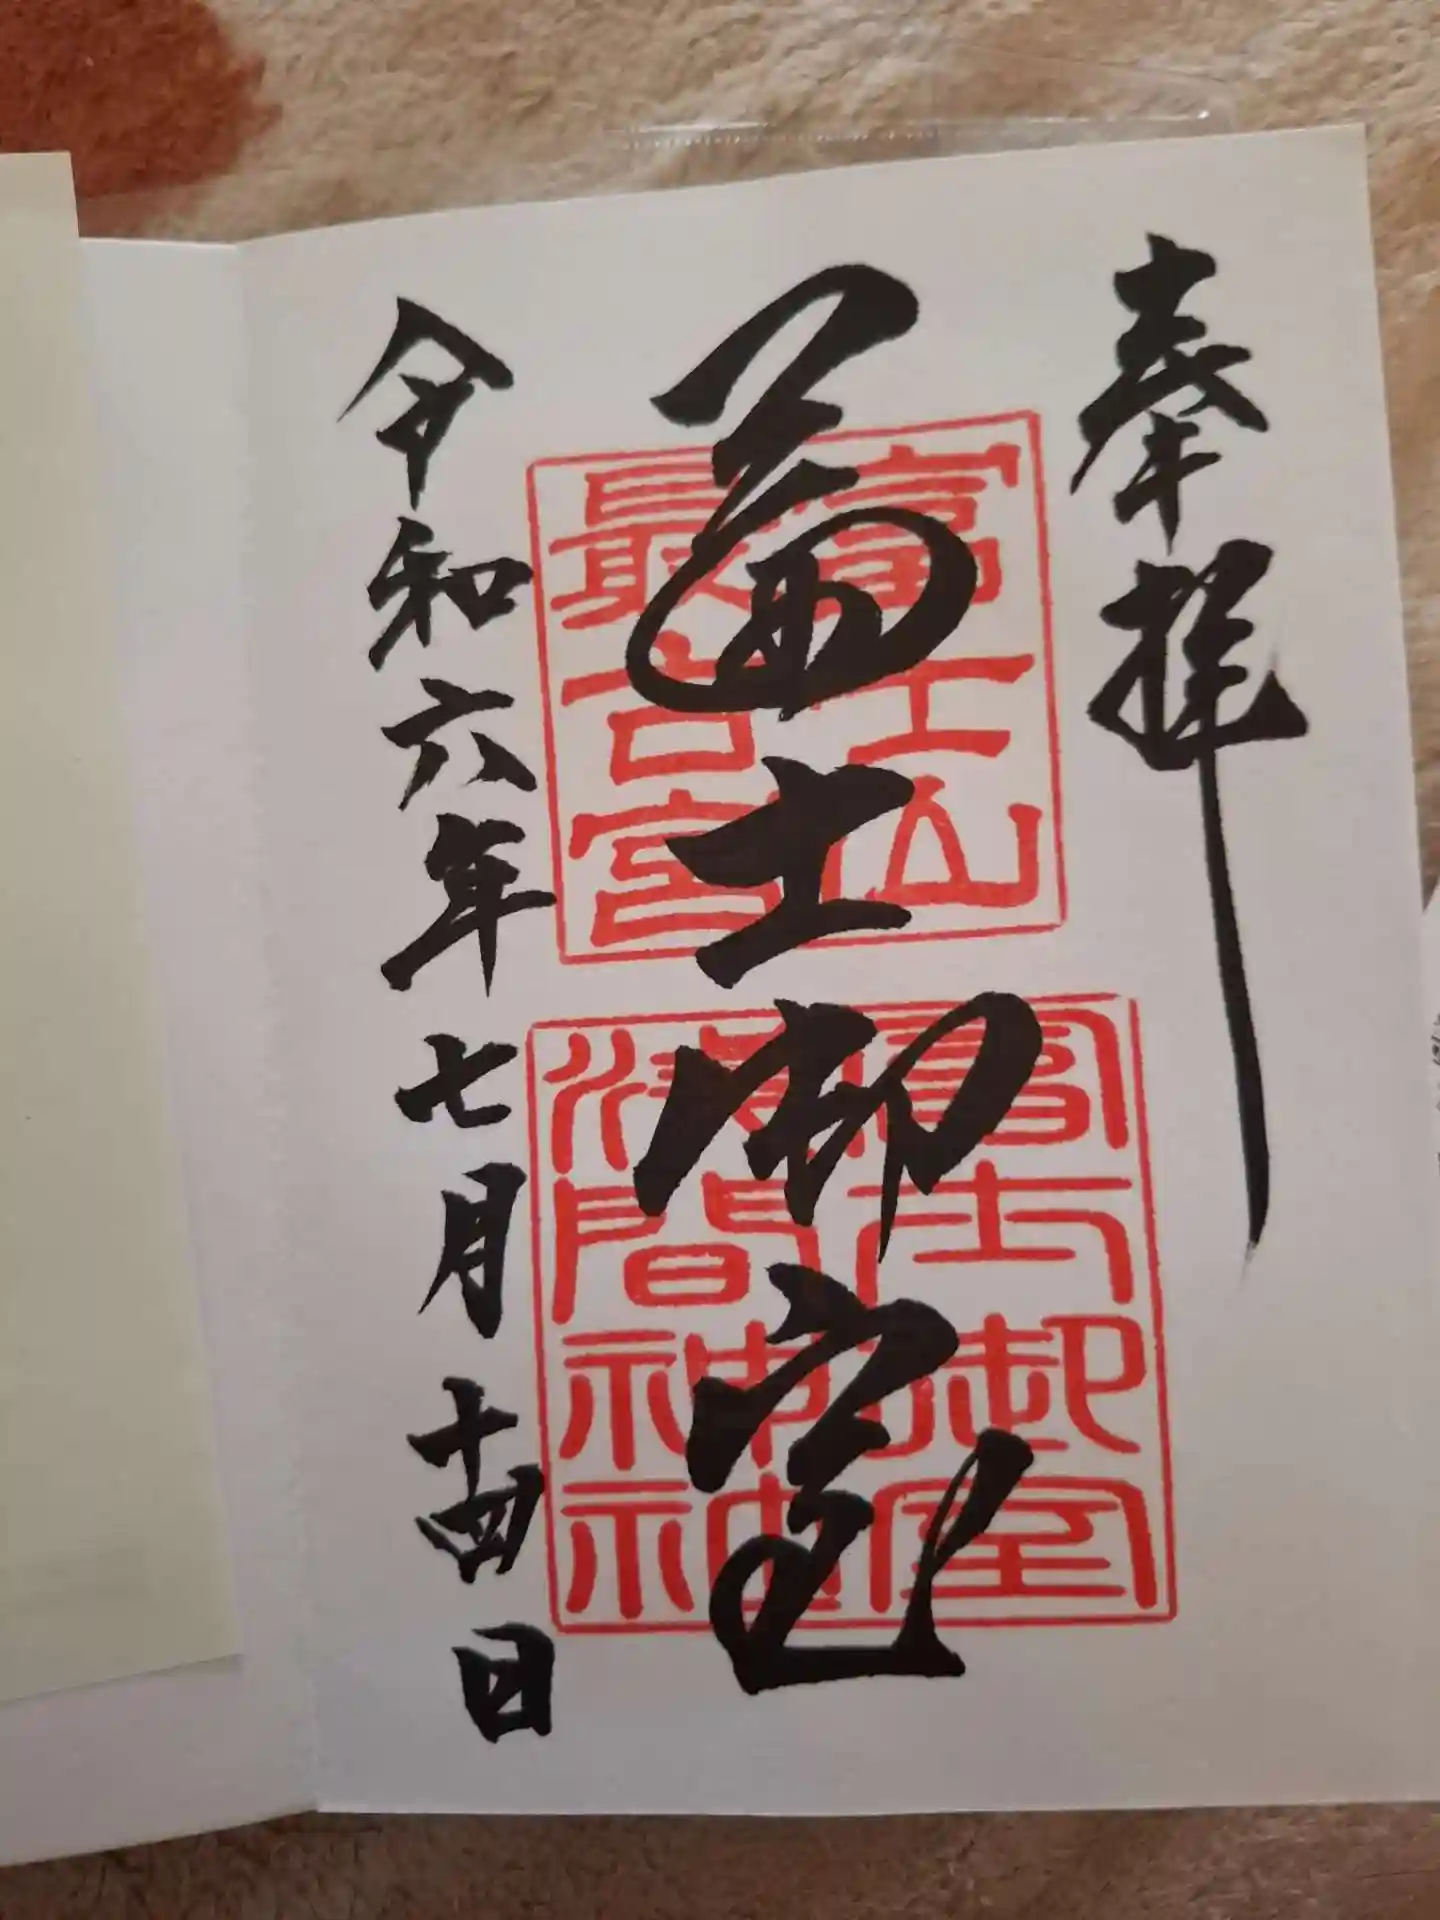 奉拝
冨士御室
令和六年七月十四日
富士山
最古宮
冨士御室
淺間神社